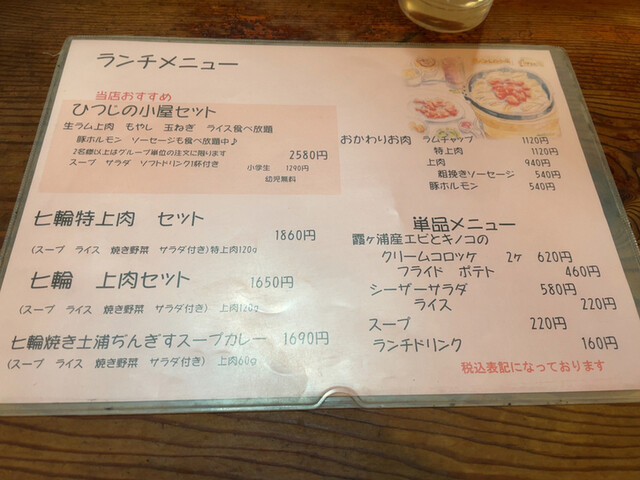 ランチメニュー
当店おすすめ
ひつじの小屋セット
生ラム上肉 もやし 玉ねぎ ライス食べ放題
豚ホルモン ソーセージも食べ放題中♪
2名様以上はグループ単位の注文に限ります 2580円
スープ サラダ ソフトドリンク1杯付き 小学生 1290円
幼児無料
七輪特上肉 セット 1860円
(スープ ライス 焼き野菜 サラダ付き)特上肉120g
七輪 上肉セット 1650円
(スープ ライス 焼き野菜 サラダ付き) 上肉120g
七輪焼き土浦ぢんぎすスープカレー 1690円
(スープ ライス 焼き野菜 サラダ付き) 上肉60g
おかわりお肉 ラムチャップ 1120円
特上肉 1120円
上肉 940円
粗挽きソーセージ 540円
豚ホルモン 540円
単品メニュー
霞ヶ浦産エビとキノコの
クリームコロッケ 2ヶ 620円
フライド ポテト 460円
シーザーサラダ 580円
ライス 220円
スープ 220円
ランチドリンク 160円
税込表記になっております